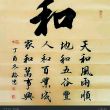 和
天和風雨順
地和五谷豐
人和百業成
家和萬事興